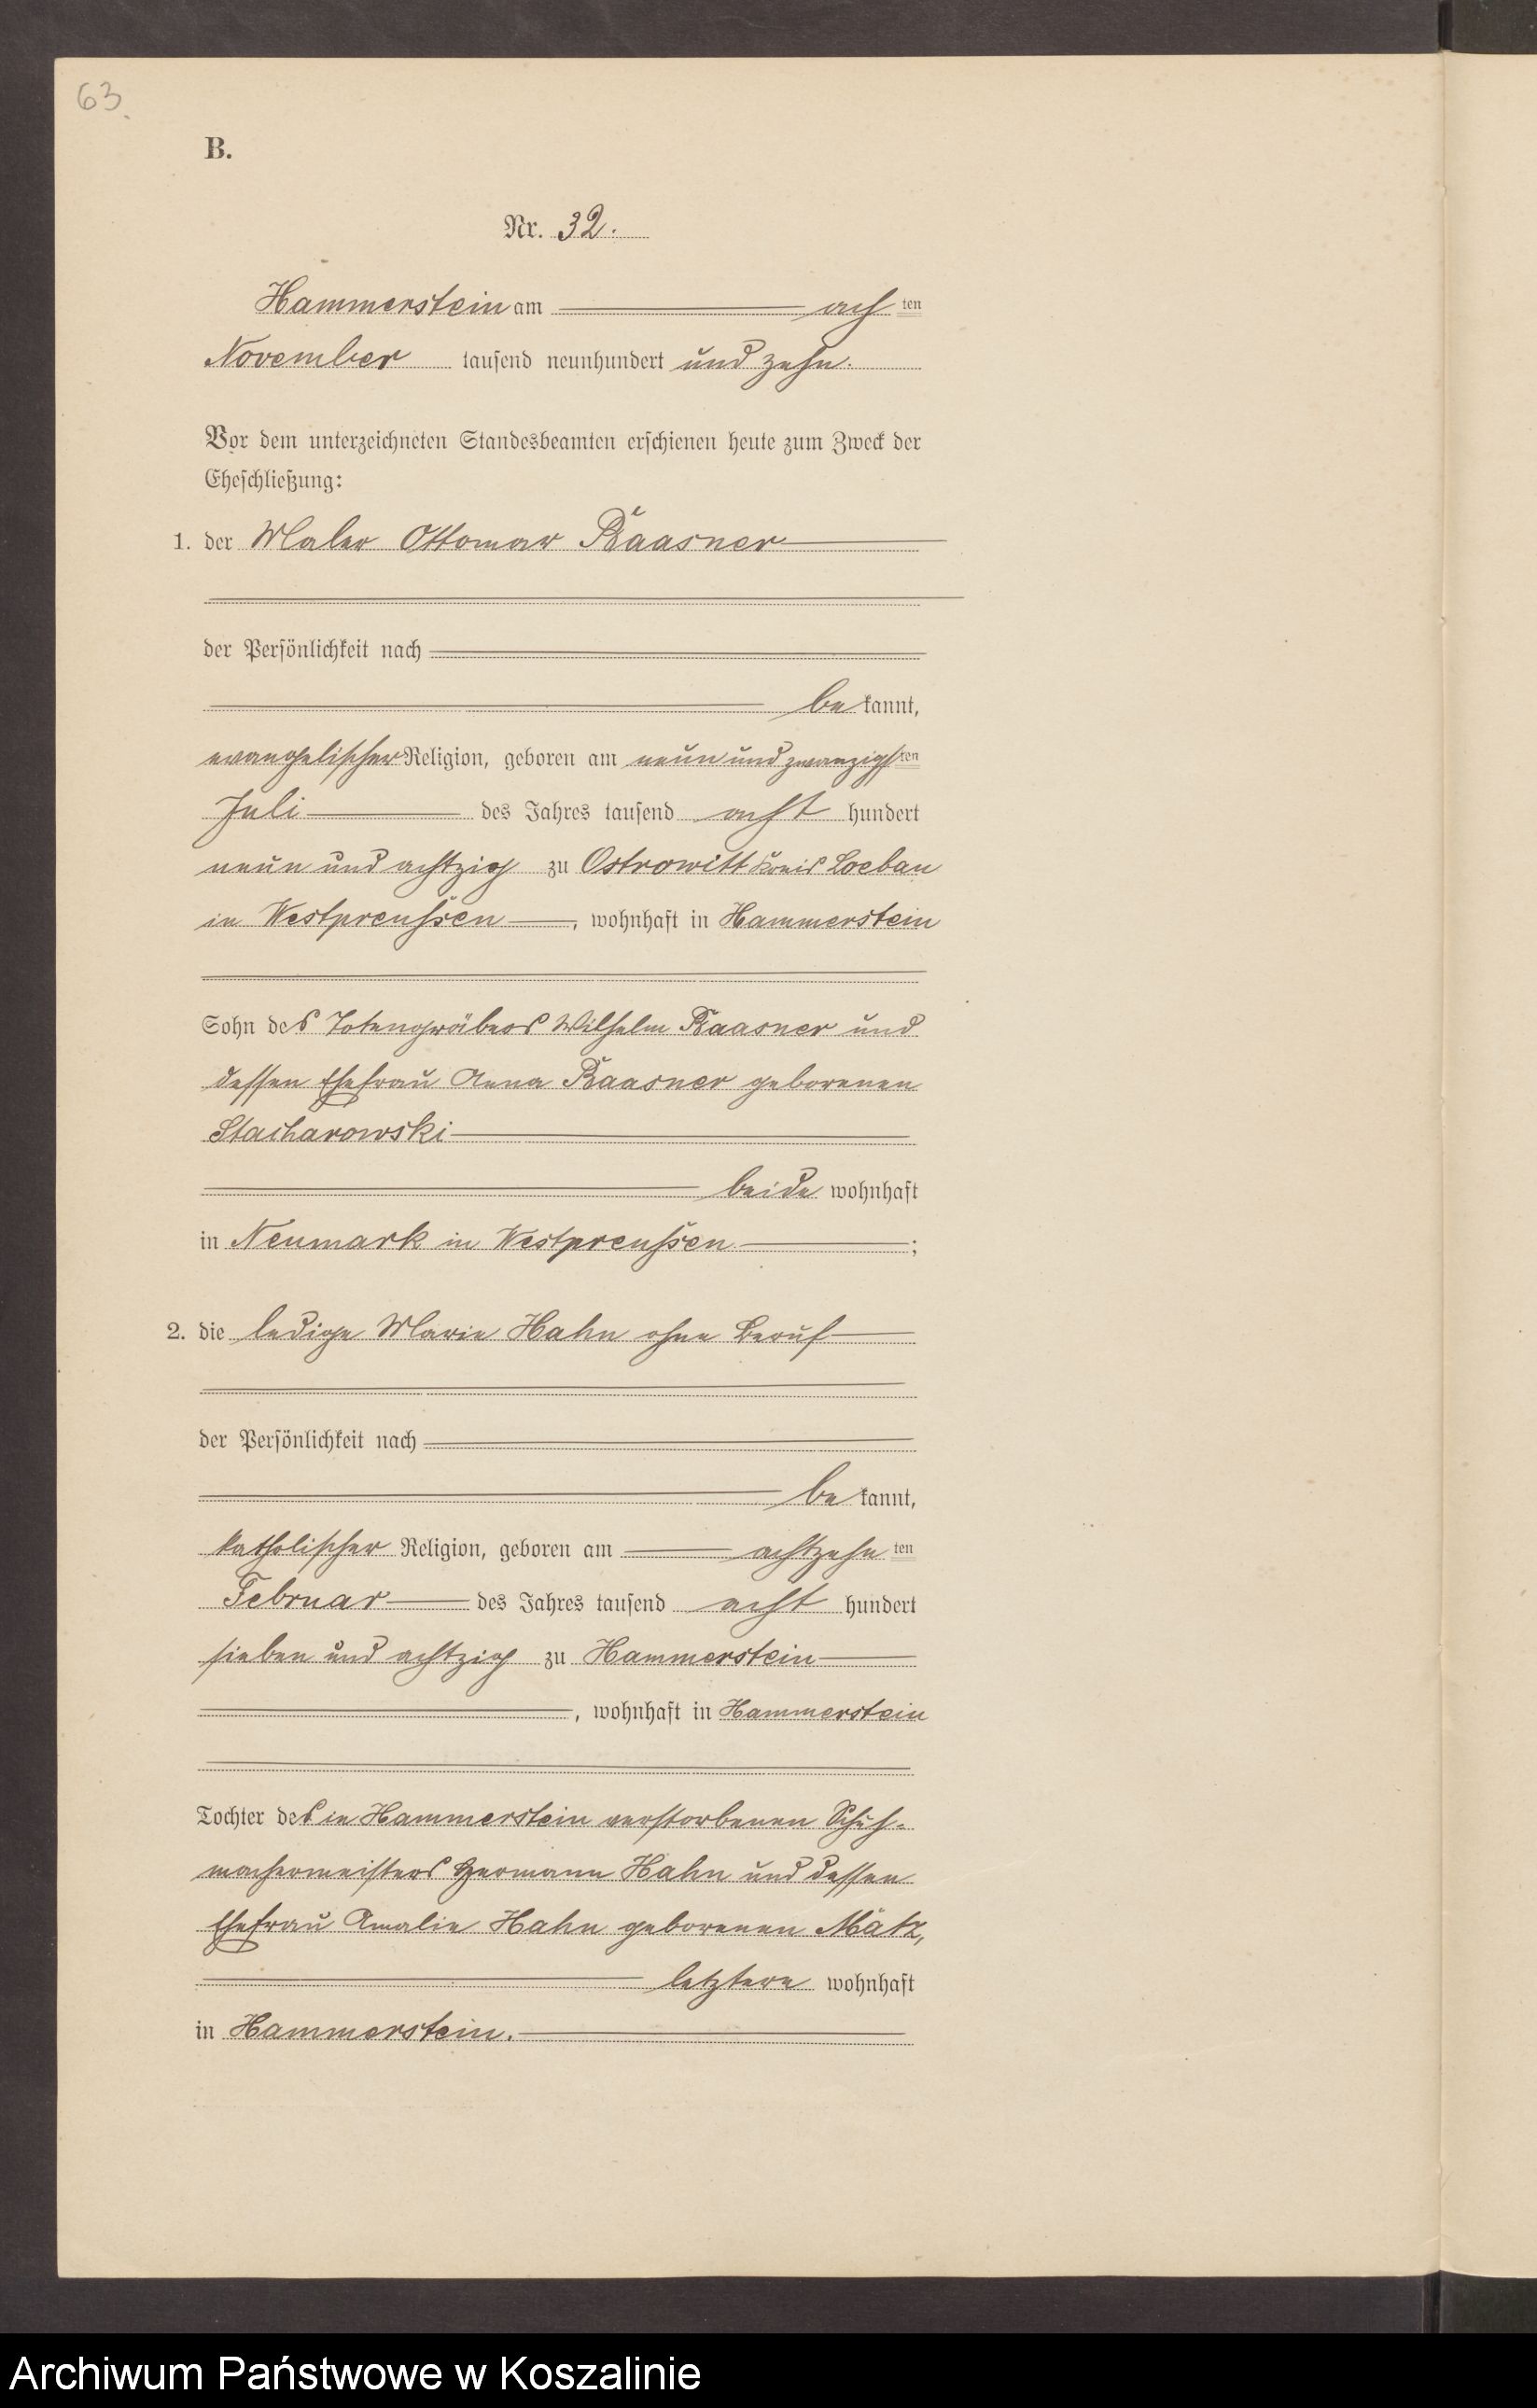 63.
B.
Nr. 32.
Hammerstein am ach ten
November tausend neunhundert und zehn.
Vor dem unterzeichneten Standesbeamten erschienen heute zum Zweck der
Eheschließung:
1. der Maler Ottomar Baasner
der Persönlichkeit nach
be kannt,
evangelischer Religion, geboren am neun und zwanzigsten
Juli des Jahres tausend acht hundert
neun und achtzig zu Ostrowitt Kreis Loebau
in Westpreussen, wohnhaft in Hammerstein
Sohn des Totengräbers Wilhelm Baasner und
dessen Ehefrau Anna Baasner geborenen
Stacharowski
beide wohnhaft
in Neumark in Westpreussen;
2. die ledige Marie Hahn ohne Beruf
der Persönlichkeit nach
be kannt,
katholischer Religion, geboren am achtzehn ten
Februar des Jahres tausend acht hundert
sieben und achtzig zu Hammerstein
, wohnhaft in Hammerstein
Tochter des in Hammerstein verstorbenen Schuh-
machermeisters Hermann Hahn und dessen
Ehefrau Amalie Hahn geborenen Mätz,
letztere wohnhaft
in Hammerstein.
Archiwum Państwowe w Koszalinie